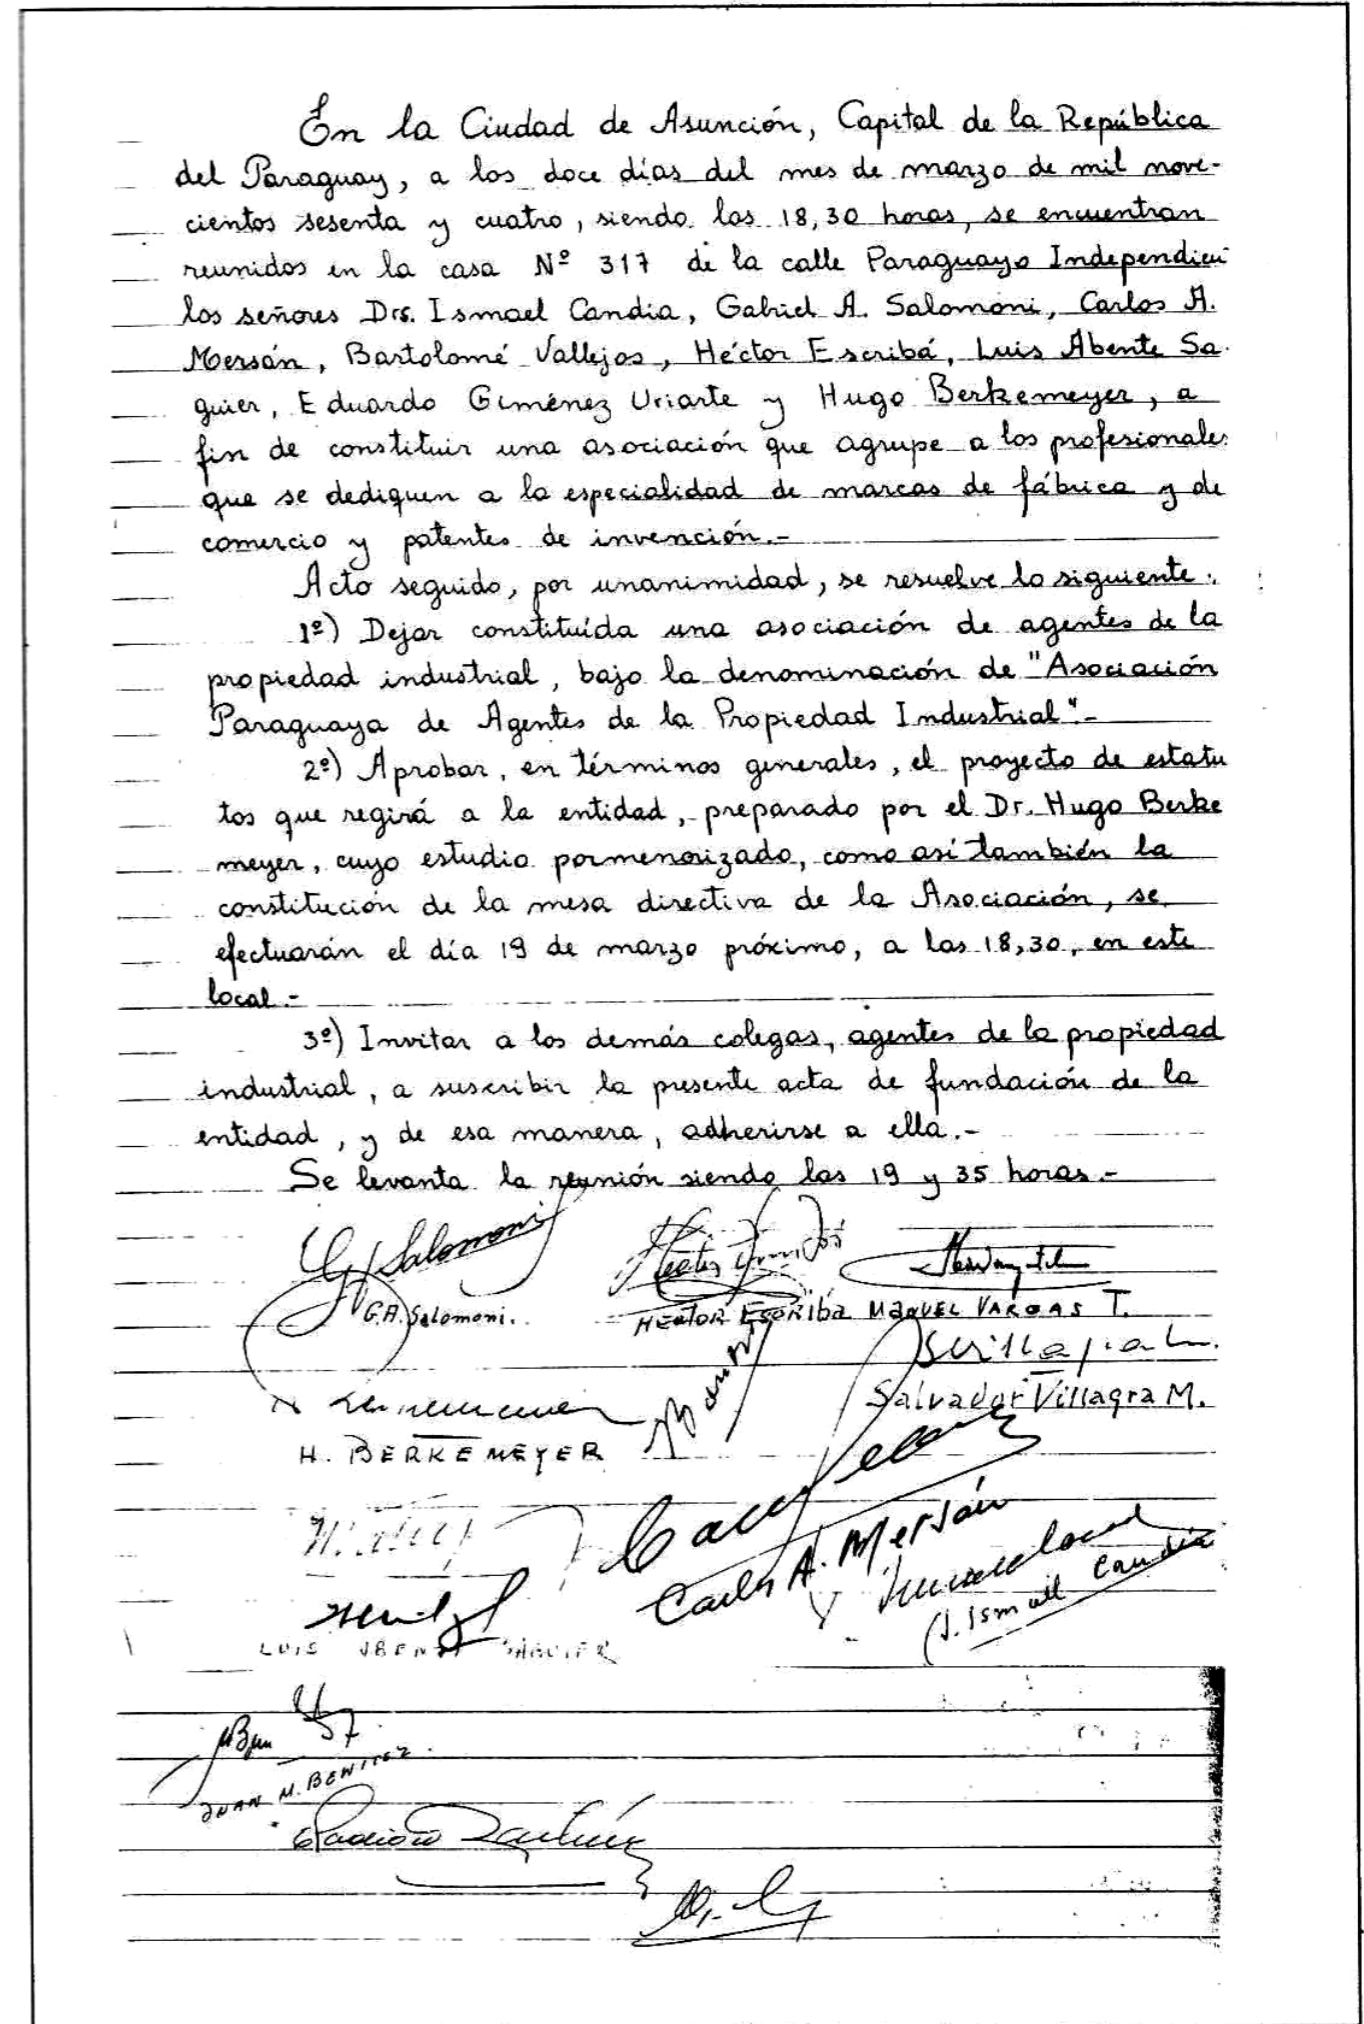 En la Ciudad de Asunción, Capital de la República
del Paraguay, a los doce días del mes de marzo de mil nove-
cientos sesenta y cuatro, siendo las 18,30 horas, se encuentran
reunidos en la casa Nº 317 de la calle Paraguayo Independien
los señores Drs. Ismael Candia, Gabriel A. Salomoni, Carlos A.
Mersán, Bartolomé Vallejos, Héctor Escribá, Luis Abente Sa-
guier, Eduardo Giménez Uriarte y Hugo Berkemeyer, a
fin de constituir una asociación que agrupe a los profesionales
que se dediquen a la especialidad de marcas de fábrica y de
comercio y patentes de invención.-
Acto seguido, por unanimidad, se resuelve lo siguiente:
1º) Dejar constituída una asociación de agentes de la
propiedad industrial, bajo la denominación de "Asociación
Paraguaya de Agentes de la Propiedad Industrial".-
2º) Aprobar, en términos generales, el proyecto de estatu
tos que regirá a la entidad, preparado por el Dr. Hugo Berke
meyer, cuyo estudio pormenorizado, como así también la
constitución de la mesa directiva de la Asociación, se
efectuarán el día 19 de marzo próximo, a las 18,30, en este
local.-
3º) Invitar a los demás colegas, agentes de la propiedad
industrial, a suscribir la presente acta de fundación de la
entidad, y de esa manera, adherirse a ella.-
Se levanta la reunión siendo las 19 y 35 horas.-
Salomoni
G.A. Salomoni.
HECTOR ESCRIBA MANUEL VARGAS T.
Salvador Villagra M.
H. BERKEMEYER
Carlos A. Mersán
J. Ismael Candia
LUIS ABENTE SAGUIER
JUAN M. BENITEZ.